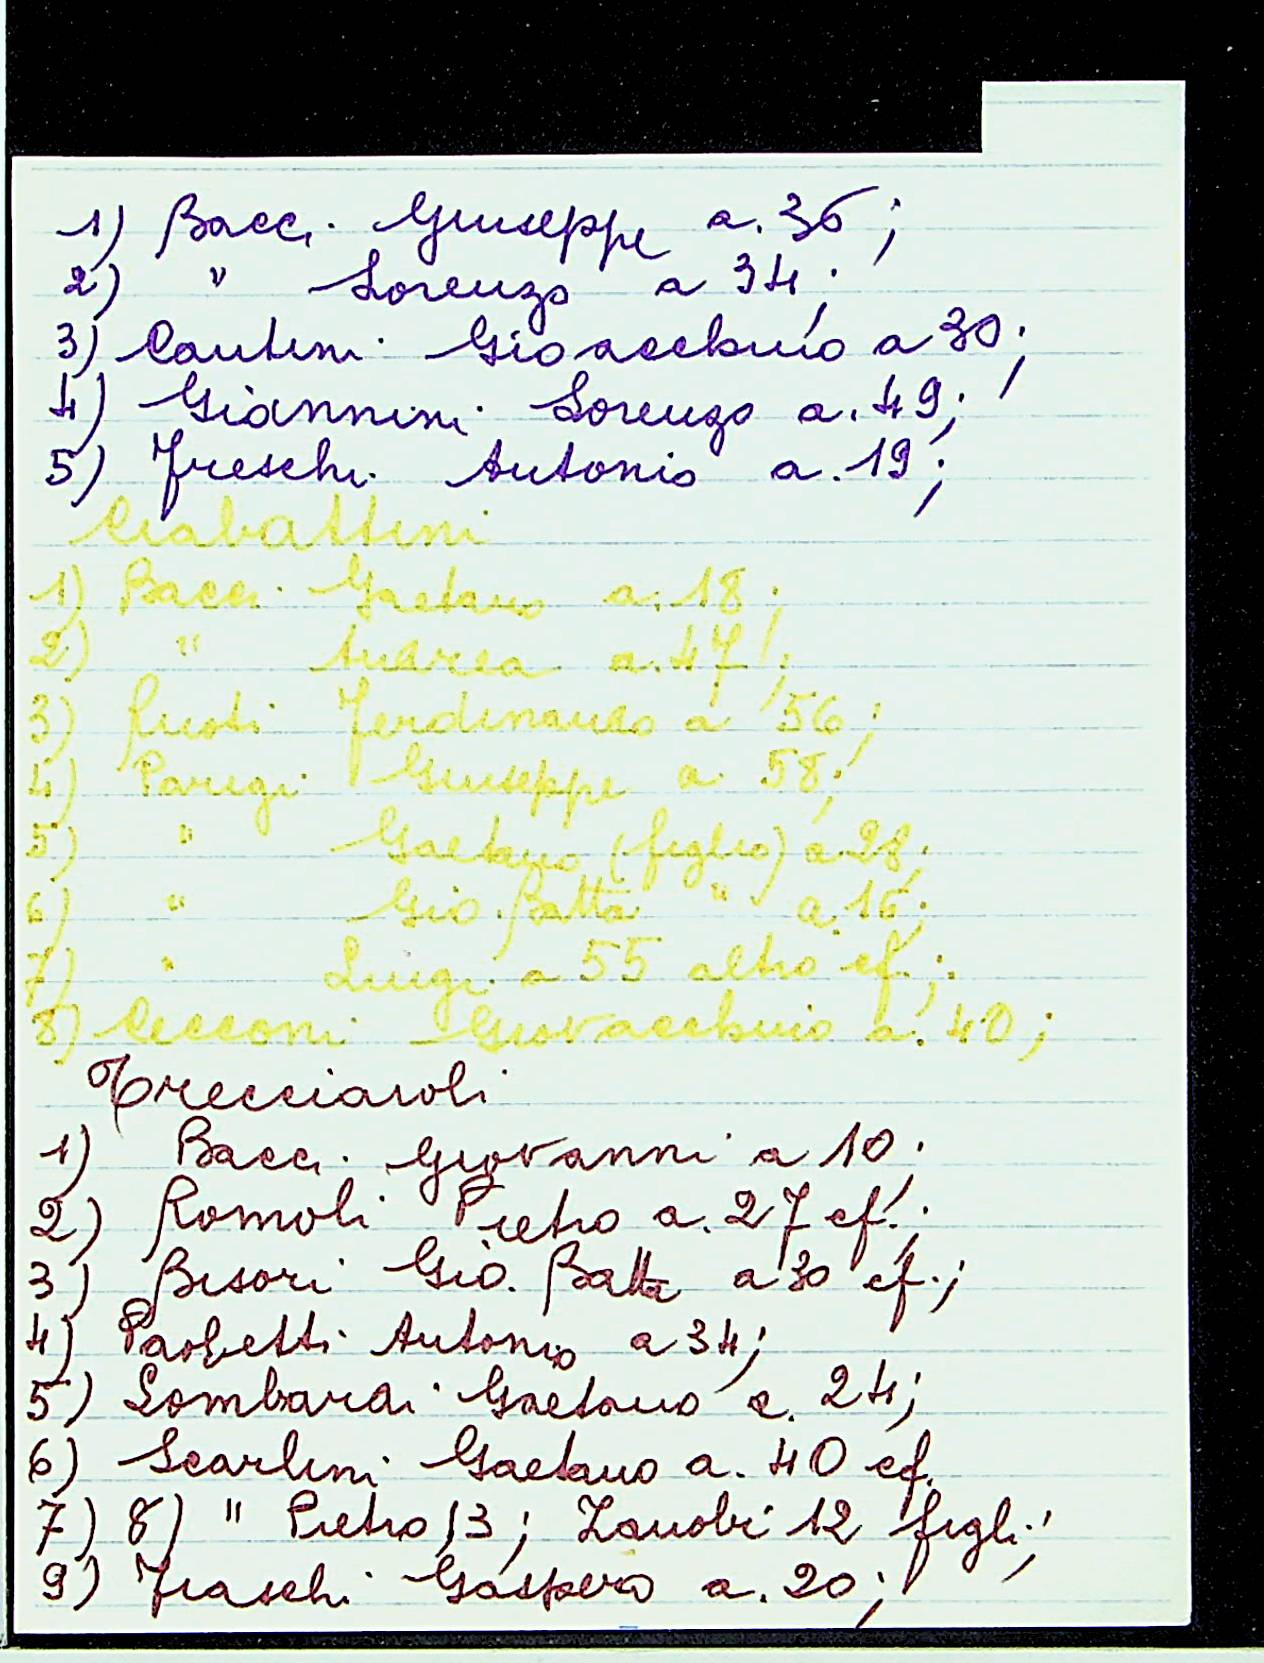 1) Bacci Giuseppe a. 36;
2) " Lorenzo a 34;
3) Cantini Gioacchino a 30;
4) Giannini Lorenzo a. 49;
5) Freschi Antonio a. 19;
Ciabattini
1) Bacci Gaetano a. 18;
2) " Andrea a. 47;
3) Ruoti Ferdinando a 56;
4) Parigi Giuseppe a 58;
5) " Gaetano (figlio) a 28;
6) " Gio. Batta " a. 16;
7) " Luigi a 55 altro cf.;
8) Cecconi Giovacchino a. 40;
Trecciaroli
1) Bacci Giovanni a 10;
2) Romoli Pietro a. 27 cf.;
3) Bisori Giò. Batta a 30 cf.;
4) Paoletti Antonio a 34;
5) Lombardi Gaetano a. 24;
6) Scarlini Gaetano a. 40 cf.
7) 8) " Pietro 13; Zanobi 12 figli;
9) Fraschi Gaspero a. 20;